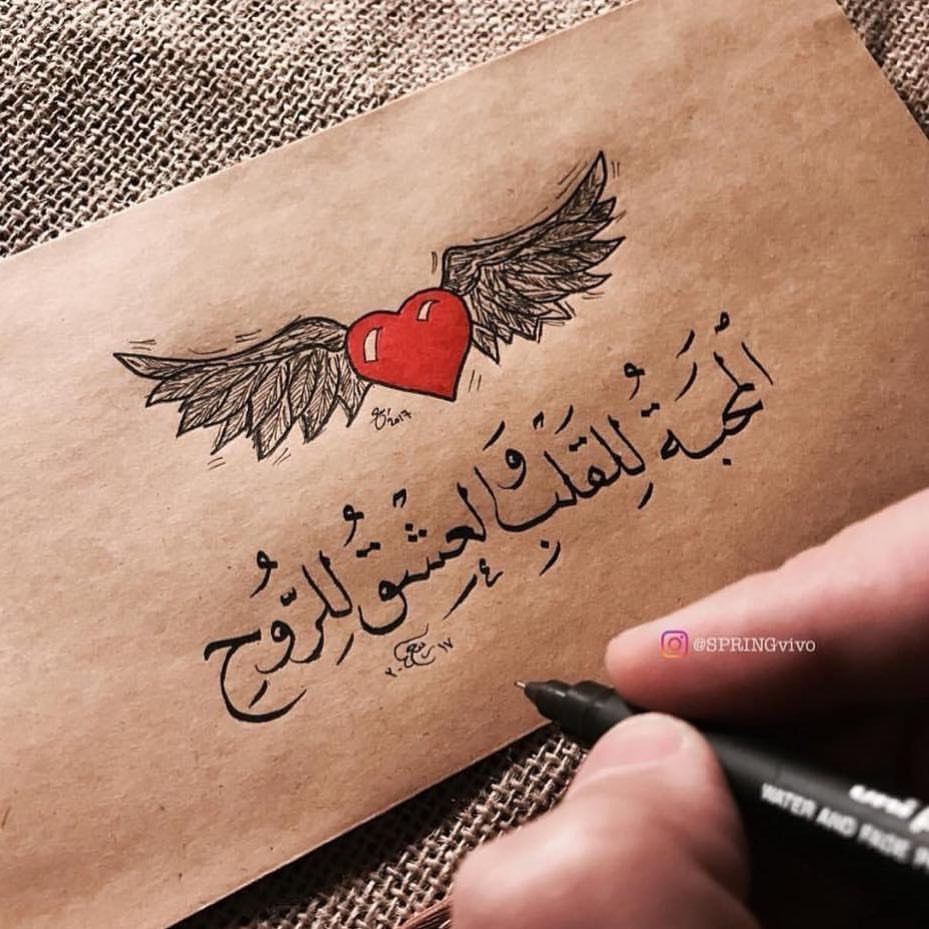 2017
المَحَبةُ لِلقَلبِ وَالعِشقُ لِلرّوُحِ
٢٠١٧
@SPRINGvivo
uni
WATER AND FADE